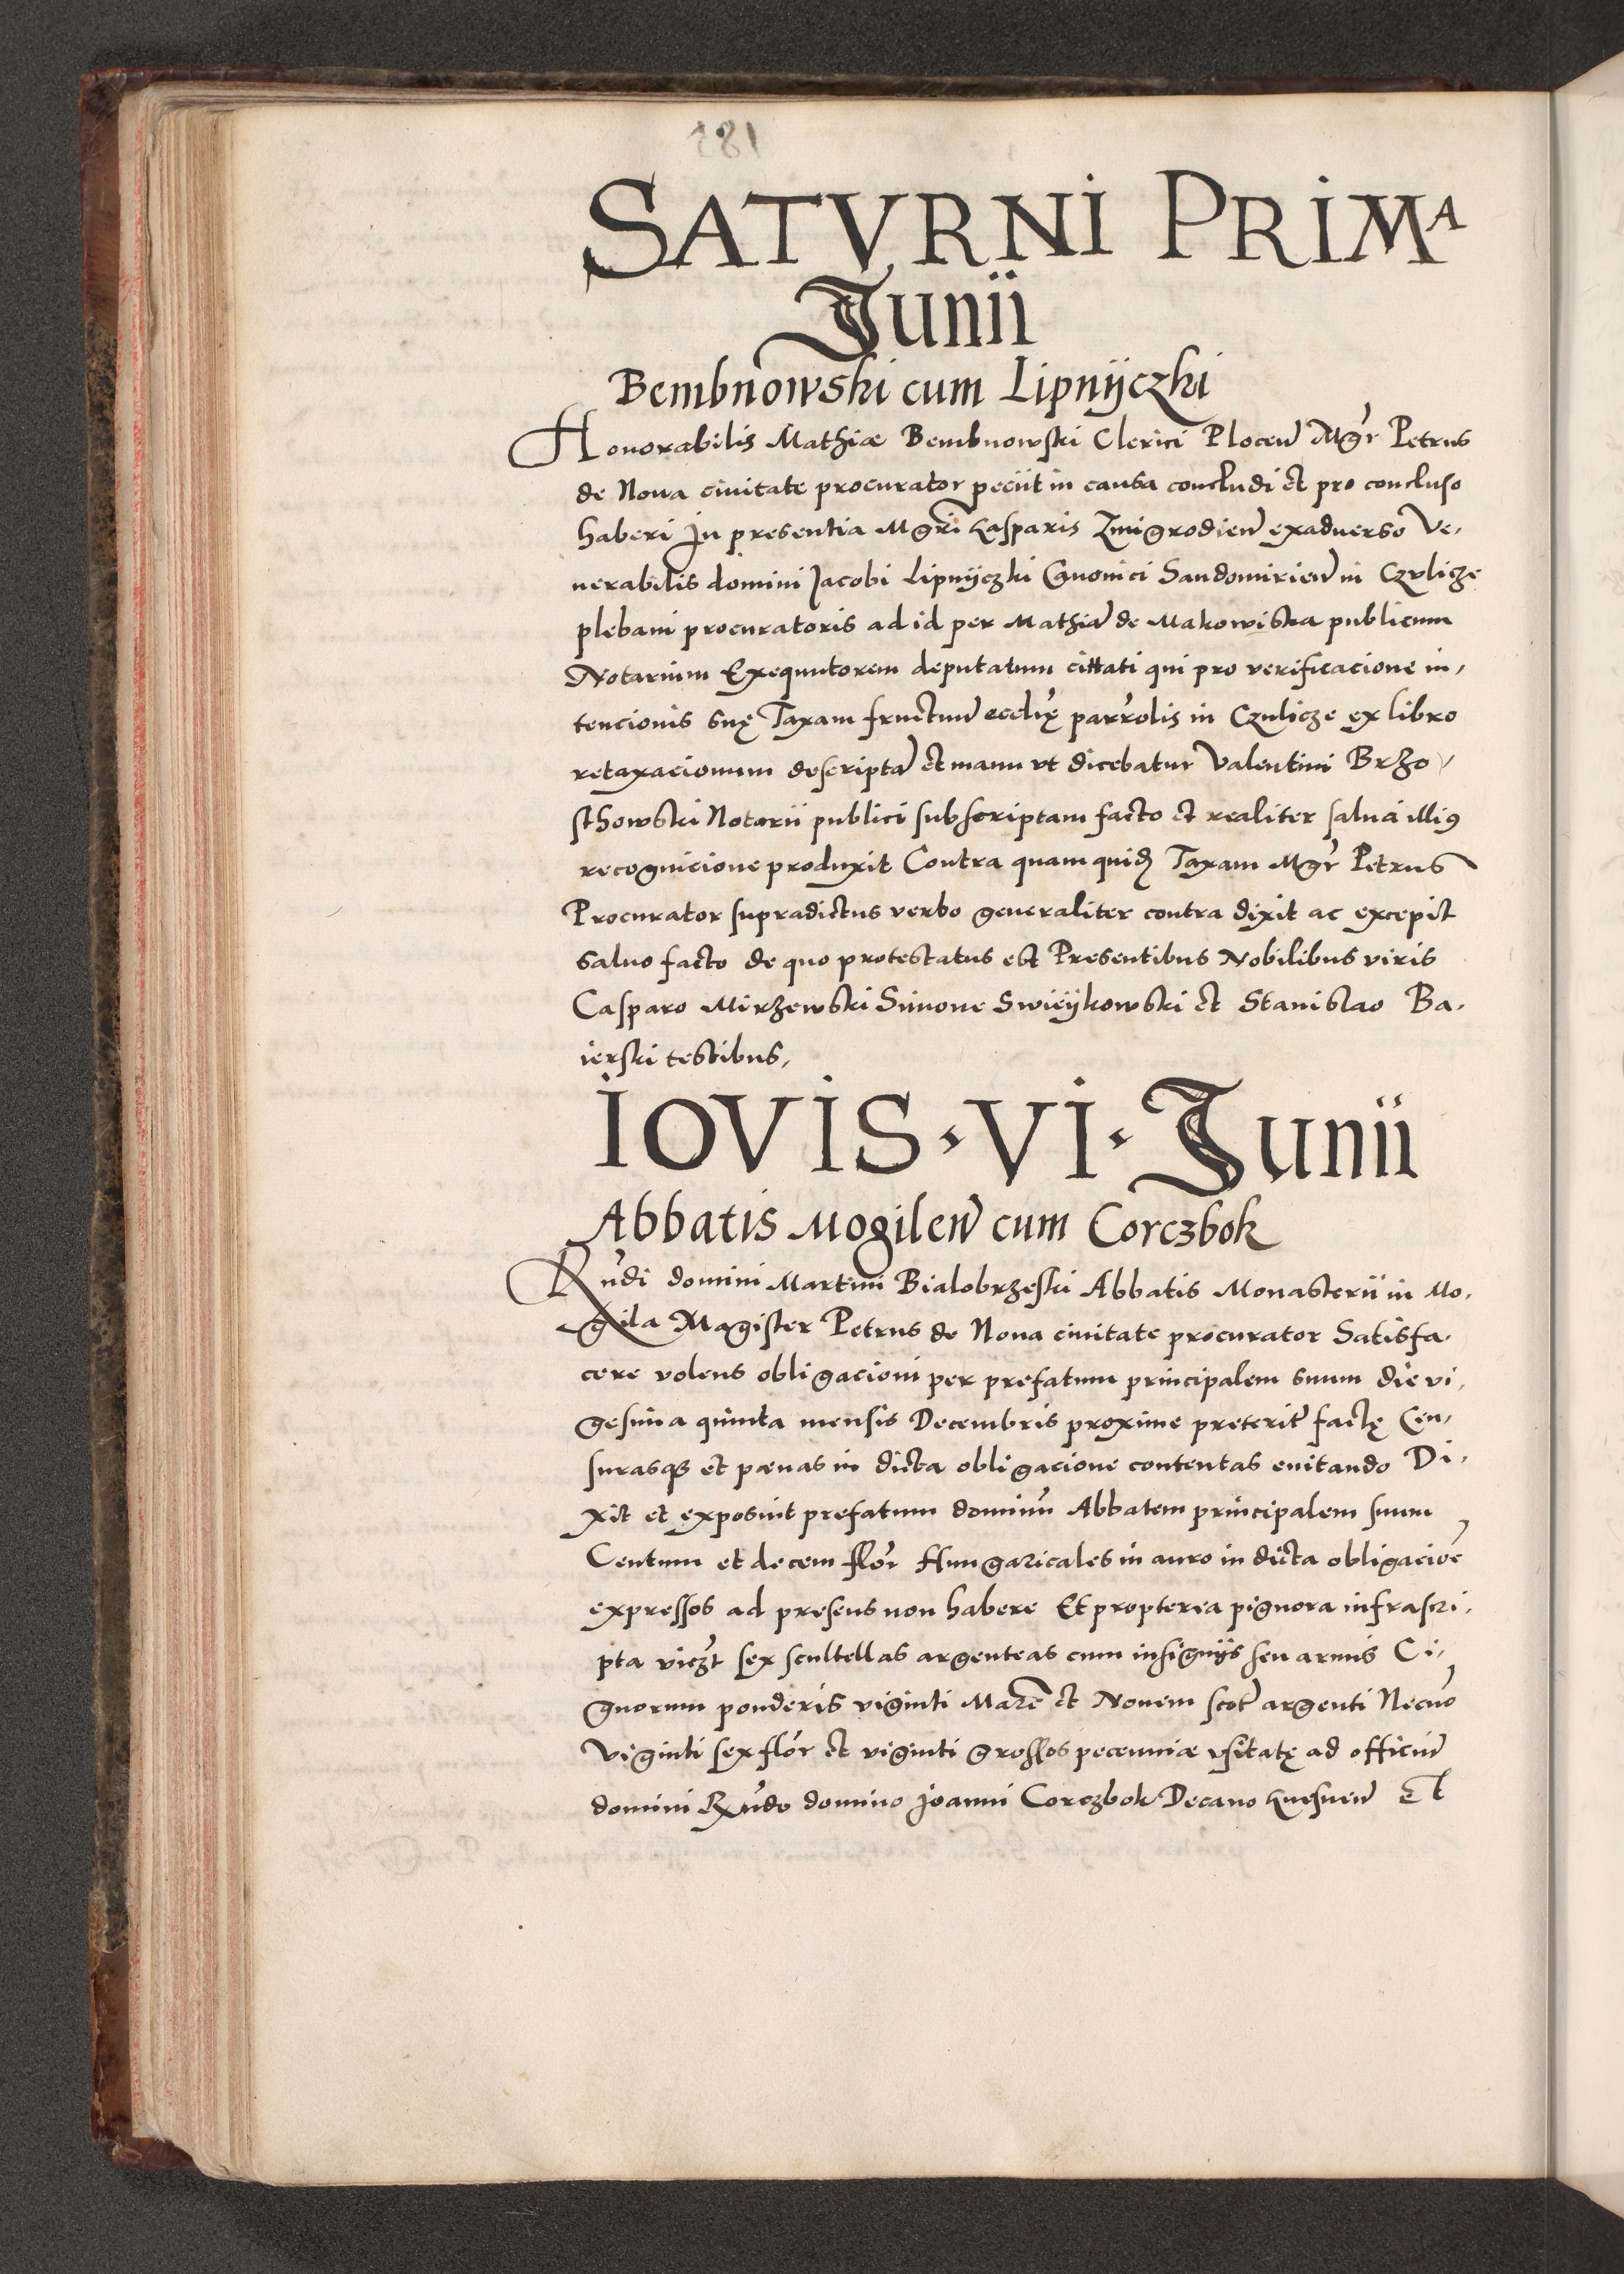 SATVRNI PRIMA
Junii
Bembnowski cum Lipnÿczki
Honorabilis Mathiæ Bembnowski Clerici Plocen̄ Mgr̄ Petrus
de Noua ciuitate procurator peciit in causa concludi et pro concluso
haberi in presentia Mgr̄i Kasparis Zmigrodien̄ exaduerso Ve,
nerabilis domini Jacobi Lipnÿczki Canonici Sandomirien̄ in Czulicze
plebani procuratoris ad id per Mathia͂ de Makowiska publicum
Notarium Exequutorem deputatum cittati qui pro verificacione in,
tencionis suę Taxam fructuu͂ eccl̄ię parr̄olis in Czulicze ex libro
retaxacionum descripta͂ et manu vt dicebatur Valentini Brzo,
sthowski Notarii publici subscriptam facto et realiter salua illiꝰ
recognicione produxit Contra quam quid̄ Taxam Mgr̄ Petrus
Procurator supradictus verbo generaliter contra dixit ac excepit
saluo facto de quo protestatus est Presentibus Nobilibus viris
Casparo Mirzewski Simone Swieÿkowski et Stanislao Ba,
ierski testibus,
IOVIS · VI · Junii
Abbatis Mogilen̄ cum Corczbok
Rn̄di domini Martini Bialobrzeski Abbatis Monasterii in Mo,
gila Magister Petrus de Noua ciuitate procurator Satisfa,
cere volens obligacioni per prefatum principalem suum die vi,
gesima quinta mensis Decembris proxime preterit̄ factę Cen,
surasqꝫ et pœnas in dicta obligacione contentas euitando Di,
xit et exposuit prefatum dominu͂ Abbatem principalem suum
Centum et decem flor̄ Hungaricales in auro in dicta obligacioē
expressos ad presens non habere Et propterea pignora infrascri,
pta viczt̄ sex scultellas argenteas cum insignijs seu armis Ci,
gnorum ponderis viginti Marc̄ et Nouem scot̄ argenti Necno͂
viginti sex flor̄ et viginti grossos pecuniæ vsitatę ad officiu͂
domini Rn̄do domino Joanni Corczbok Decano Knesnen̄ Et